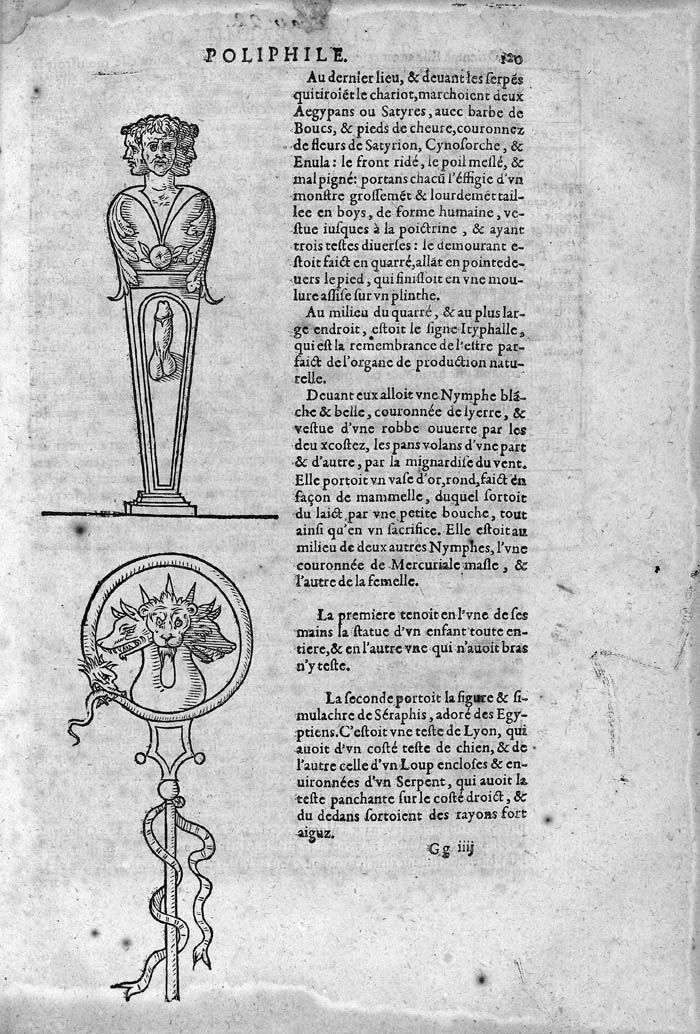 POLIPHILE.
120
Au dernier lieu, & deuant les serpẽs
qui tiroiẽt le chariot, marchoient deux
Aegypans ou Satyres, auec barbe de
Boucs, & pieds de cheure, couronnez
de fleurs de Satyrion, Cynosorche, &
Enula: le front ridé, le poil meslé, &
mal pigné: portans chacũ l'éffigie d'vn
monstre grossemẽt & lourdemẽt tail-
lee en boys, de forme humaine, ve-
stue iusques à la poictrine, & ayant
trois testes diuerses: le demourant e-
stoit faict en quarré, allãt en pointe de-
uers le pied, qui finissoit en vne mou-
lure assise sur vn plinthe.
Au milieu du quarré, & au plus lar-
ge endroit, estoit le signe Ityphalle,
qui est la remembrance de l'estre par-
faict de l'organe de production natu-
relle.
Deuant eux alloit vne Nymphe blã-
che & belle, couronnée de lyerre, &
vestue d'vne robbe ouuerte par les
deu xcostez, les pans volans d'vne part
& d'autre, par la mignardise du vent.
Elle portoit vn vase d'or, rond, faict en
façon de mammelle, duquel sortoit
du laict par vne petite bouche, tout
ainsi qu'en vn sacrifice. Elle estoit au
milieu de deux autres Nymphes, l'vne
couronnée de Mercuriale masle, &
l'autre de la femelle.
La premiere tenoit en l'vne de ses
mains la statue d'vn enfant toute en-
tiere, & en l'autre vne qui n'auoit bras
n'y teste.
La seconde portoit la figure & si-
mulachre de Séraphis, adoré des Egy-
ptiens. C'estoit vne teste de Lyon, qui
auoit d'vn costé teste de chien, & de
l'autre celle d'vn Loup encloses & en-
uironnées d'vn Serpent, qui auoit la
teste panchante sur le costé droict, &
du dedans sortoient des rayons fort
aiguz.
Gg iiij